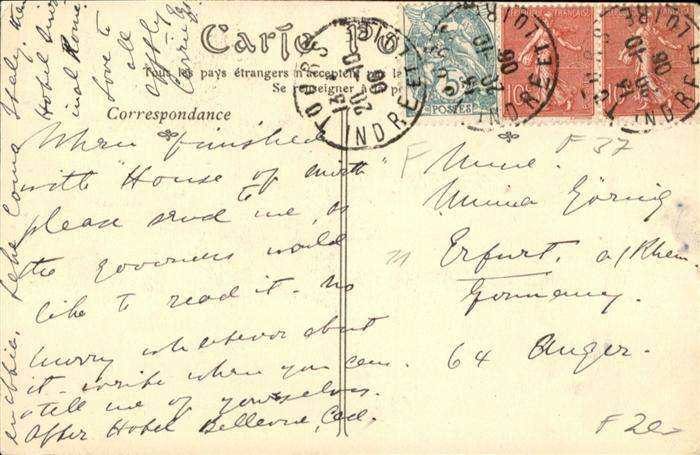 Carte Po
Tous les pays étrangers n'acceptent
Se
Correspondance
TOURS
INDRE ET LOIRE
20 10
06
POSTES
10
When finished
with "House of Mirth"
please send to me, as
the governess would
like to read it - No
hurry whatever about
it - write when you can
& tell me of yourselves.
After Hotel Bellevue, Cad,
enabbia, Lake Como Italy,
Hotel
inal Rome
Love to
all
Affly
Carrie
F 37
F
Mme.
Minna Görig
Erfurt. a/Rhein.
Germany.
64 Anger.
F 20